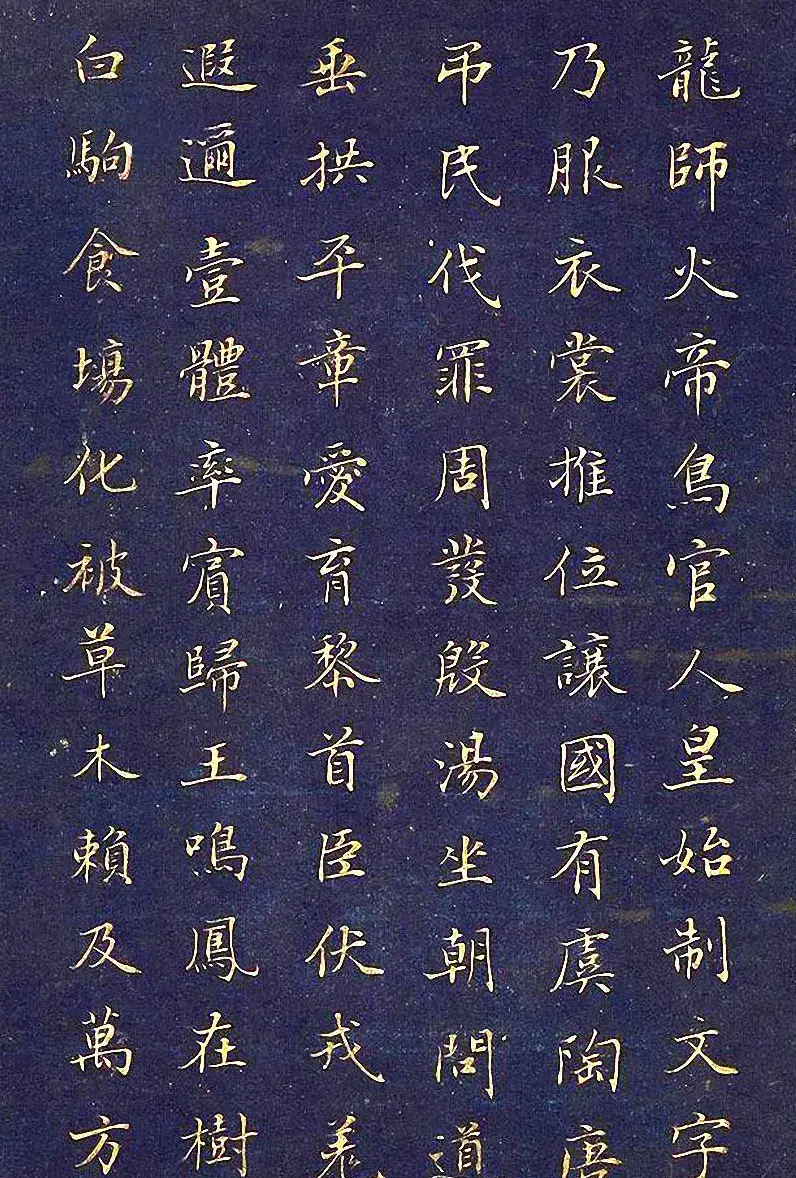 龍師火帝鳥官人皇始制文字
乃服衣裳推位讓國有虞陶唐
弔民伐罪周發殷湯坐朝問道
垂拱平章愛育黎首臣伏戎羌
遐邇壹體率賓歸王鳴鳳在樹
白駒食場化被草木賴及萬方